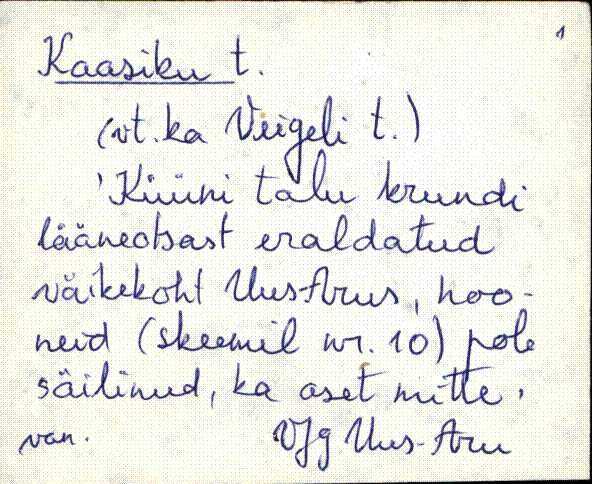 1
Kaasiku t.
(vt. ka Viigeli t.)
'Küüni talu krundi
lääneotsast eraldatud
väikekoht Uus-Arus, hoo-
neid (skeemil nr. 10) pole
säilinud, ka aset mitte.
van. VJg Uus-Aru